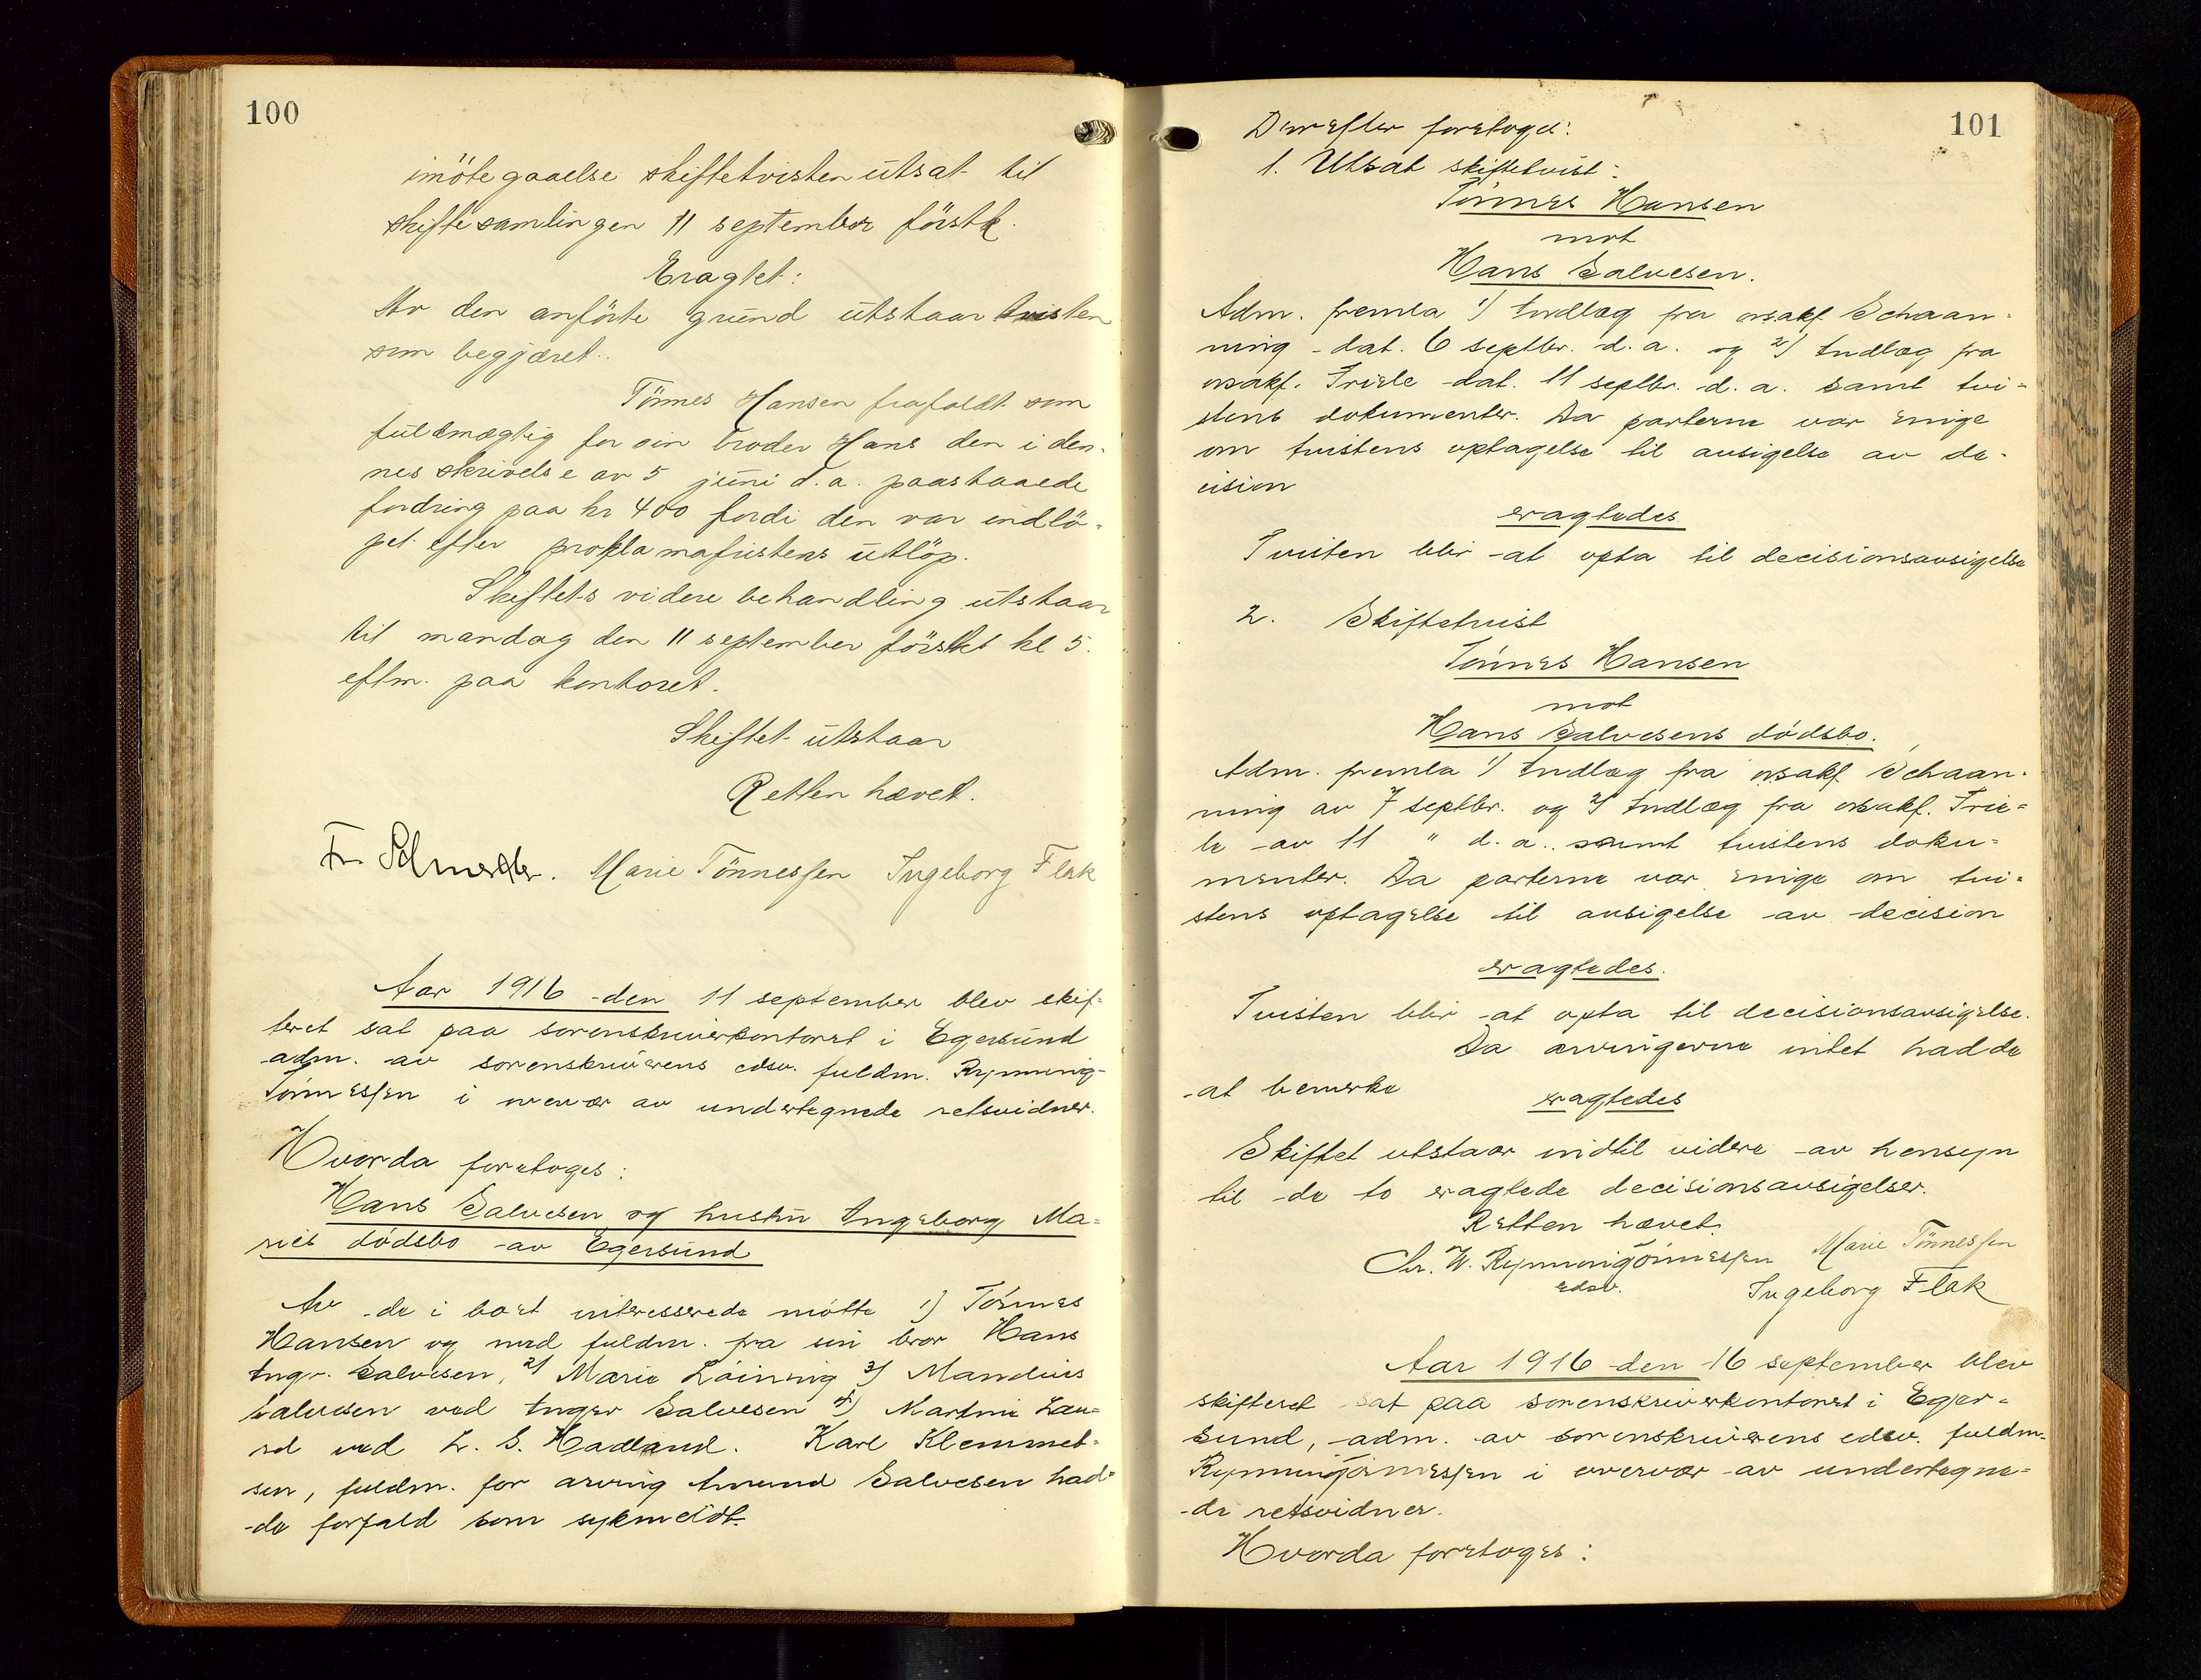 100
imöte gaaelse skiftetvisten utsat til
skiftesamlingen 11 september förstk.
Eragtet:
Av den anförte grund utstaar tvisten
som begjæret.
Tönnes Hansen frafaldt som
fuldmægtig for sin broder Hans den i den-
nes skrivelse av 5 juni d.a. paastaaede
fordring paa kr 400 fordi den var indlö-
pet efter proklamafristens utlöp.
Skiftets videre behandling utstaar
til mandag den 11 september förstkt kl 5.
eftm. paa kontoret.
Skiftet utstaar
Retten hævet.
Marie Tönnessen Ingeborg Flak
Aar 1916 den 11 september blev skif-
teret sat paa sorenskriverkontoret i Egersund
adm. av sorenskriverens edsv. fuldm. Rynning-
Tónnessen i overvær av undertegnede retsvidner.
Hvorda foretoges:
Hans Salvesen og hustru Ingeborg Ma-
ries dódsbo av Egersund
Av de i boet interesserede mótte 1) Tónnes
Hansen og med fuldm. fra sin bror Hans
Ingv. Salvesen, 2) Marie Lóining 3) Mandius
Salvesen ved Inger Salvesen 4) Martine Lau-
rd ved L. S. Hadland. Karl Klemmet-
sen, fuldm. for arving Amund Salvesen had-
de forfald som sykmeldt.
101
Derefter foretoges:
1. Utsat skiftetvist:
Tónnes Hansen
mot
Hans Salvesen.
Adm. fremla 1) Indlæg fra o.r.sakf. Schaan-
ning dat. 6 septbr. d.a. og 2) Indlæg fra
o.r.sakf. Friele dat. 11 septbr. d.a. samt tvi-
stens dokumenter. Da parterne var enige
om tvistens optagelse til avsigelse av de-
cision
eragtedes
Tvisten blir at opta til decisionsavsigelse
2. Skiftetvist
Tónnes Hansen
mot
Hans Salvesens dódsbo.
Adm. fremla 1) Indlæg fra o.r.sakf. Schaan-
ning av 7 septbr. og 2) Indlæg fra o.r.sakf. Frie-
le av 11 " d.a. samt tvistens doku-
menter. Da parterne var enige om tvi-
stens optagelse til avsigelse av decision
eragtedes.
Tvisten blir at opta til decisionsavsigelse.
Da arvingerne intet hadde
at bemerke
eragtedes
Skiftet utstaar indtil videre av hensyn
til de to eragtede decisionsavsigelser.
Retten hævet.
Chr. W. Rynning Tónnessen Marie Tönnessen
edsv. Ingeborg Flak
Aar 1916 den 16 september blev
skifteret sat paa sorenskriverkontoret i Eger-
sund, adm. av sorenskriverens edsv. fuldm.
Rynning Tónnessen i overvær av undertegne-
de retsvidner.
Hvorda foretoges: